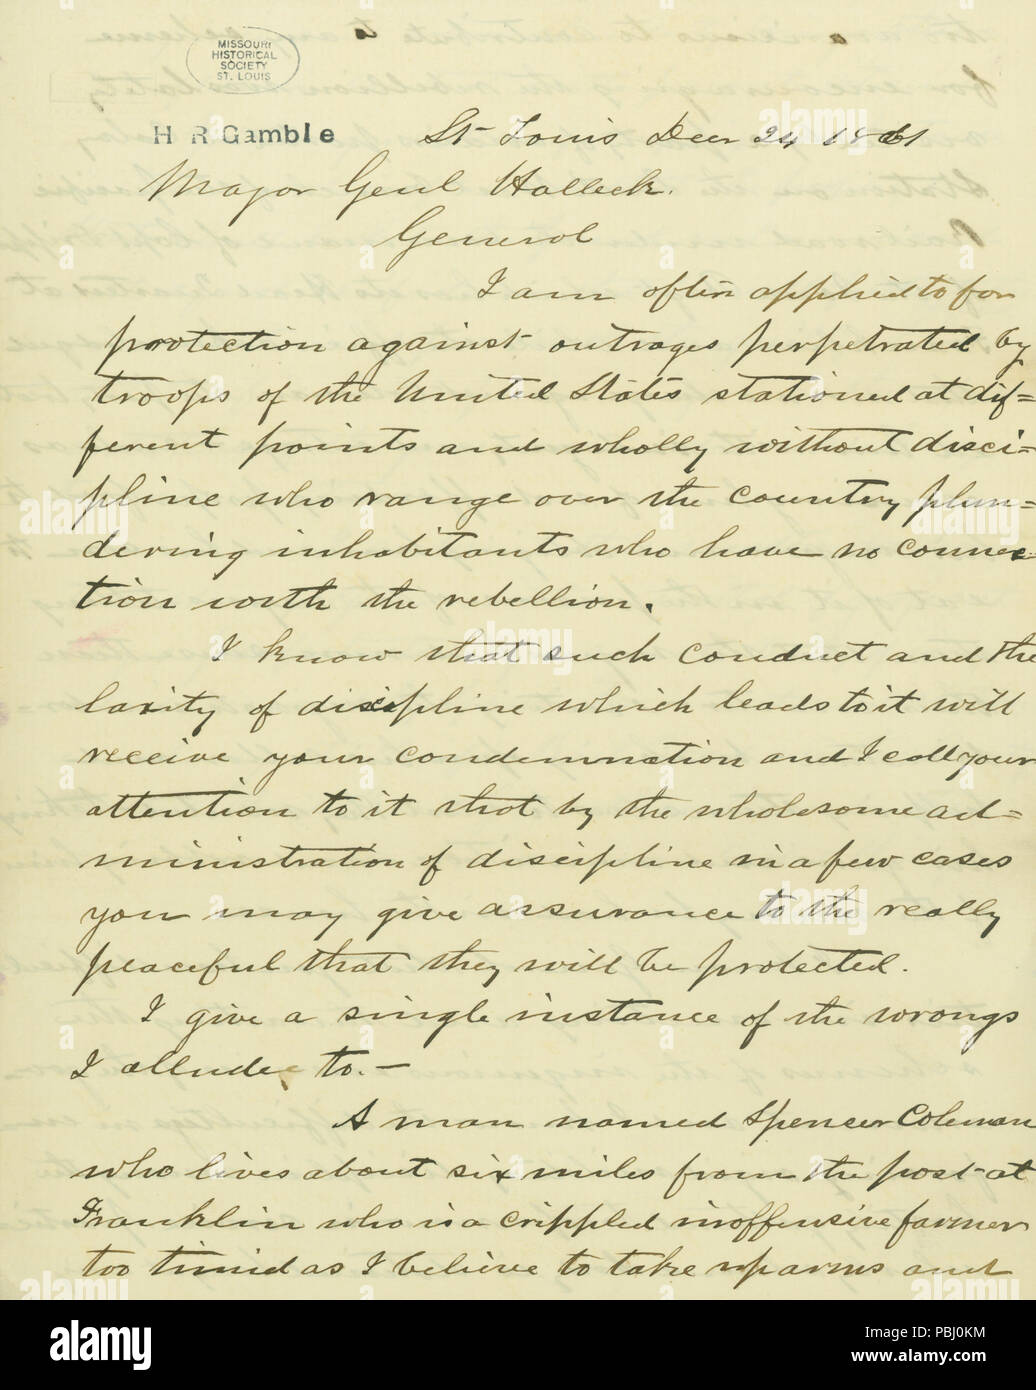 MISSOURI
HISTORICAL
SOCIETY
ST. LOUIS
H R Gamble
St Louis Decr 24 1861
Major Genl Halleck.
General
I am often applied to for
protection against outrages perpetrated by
troops of the United States stationed at dif=
ferent points and wholly without disci=
pline who range over the country plun=
dering inhabitants who have no connec
tion with the rebellion.
I know that such conduct and the
laxity of discipline which leads to it will
receive your condemnation and I call your
attention to it that by the wholesome ad=
ministration of discipline in a few cases
you may give assurance to the really
peaceful that they will be protected.
I give a single instance of the wrongs
I allude to.—
A man named Spencer Coleman
who lives about six miles from the post at
Franklin who is a crippled inoffensive farmer
too timid as I believe to take up arms and
alamy
Image ID: PBJ0KM
www.alamy.com